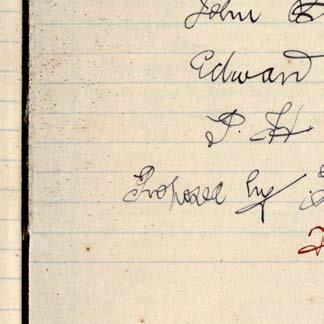 John
Edward
P. H
Proposed by